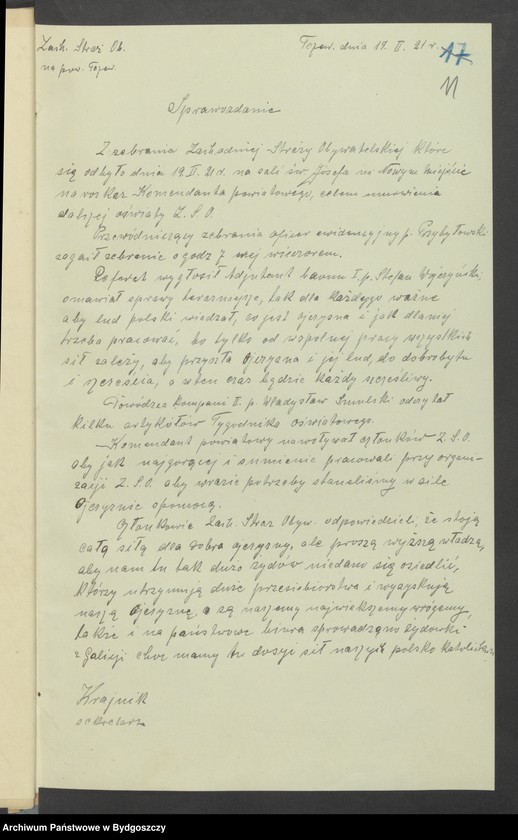 Zach. Straż Ob.
na pow. Tczew.
Tczew, dnia 19. II. 21 r.
17
11
Sprawozdanie
Z zebrania Zachodniej Straży Obywatelskiej które
się odbyło dnia 19 II. 21 r. na sali św. Józefa na Nowym Mieście
na roskaz Komendanta powiatowego, celem umówienia
dalszej oświaty Z. S. O.
Przewódniczący zebrania oficer ewidencyjny p. Przybyłowski
zagaił zebranie o godz 7 mej wieczorem.
Referet wygłosił Adjutent baonu I. p. Stefan Wyczyński,
omawiał sprawy teraźniejsze, tak dla każdego ważne
aby lud polski wiedzał, co jest ojczyzna i jak dla niej
trzeba pracować, bo tylko od wspólnej pracy wszystkich
sił zależy, aby przyszła ojczyzna i jej lud, do dobrobytu
i szczęścia, a w ten czas będzie każdy szczęśliwy.
Dowódzca kompani II. p. Władysław Smulski odczytał
kilku artykółów Tygodnika oświatowego.
Komendant powiatowy nawoływał członków Z. S. O.
aby jak najgoręcej i sumienie pracowali przy organi-
zacji Z. S. O. aby wrazie potrzeby stanęliśmy w sile
Ojczyznie z pomocą.
Członkowie Zach. Straż Obyw. odpowiedzieli, że stoją
całą siłą dla dobra ojczyzny, ale proszą wyższą władzę,
aby nam tu tak dużo żydów niedano się osiedlić,
którzy utrzymują duże przesiebiorstwa i wyzyskują
naszą Ojczyznę, a są naszemy największemy wrogemy,
także i na państwowe biura sprowadzano żydowki
z Galicji choć mamy tu dosyć sił naszych polsko katolickich
Krajnik
sekretarz
Archiwum Państwowe w Bydgoszczy